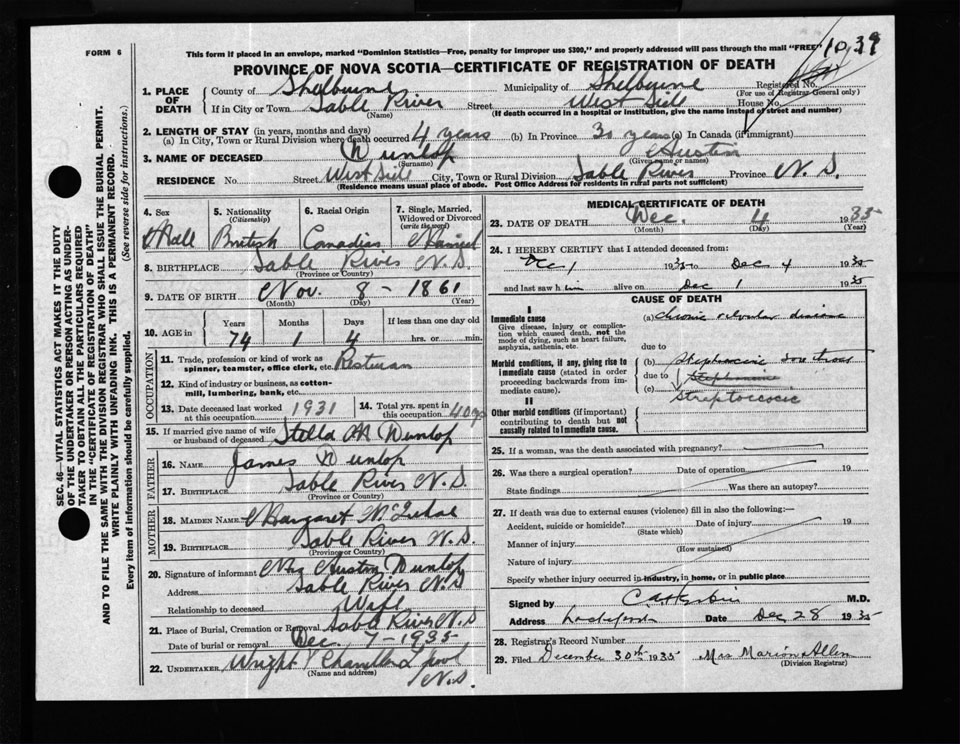 FORM 6
This form if placed in an envelope, marked "Dominion Statistics—Free, penalty for improper use $300," and properly addressed will pass through the mail "FREE"
1039
PROVINCE OF NOVA SCOTIA—CERTIFICATE OF REGISTRATION OF DEATH
1. PLACE OF DEATH
County of Shelburne
Municipality of Shelburne
Registered No.
(For use of Registrar General only)
If in City or Town Sable River
(Name)
Street West Side House No.
(If death occurred in a hospital or institution, give the name instead of street and number)
2. LENGTH OF STAY (in years, months and days)
(a) In City, Town or Rural Division where death occurred 4 years (b) In Province 30 years (c) In Canada (if immigrant)
3. NAME OF DECEASED Dunlop Austin
(Surname) (Given name or names)
RESIDENCE No. Street West Side City, Town or Rural Division Sable River Province N. S.
(Residence means usual place of abode. Post Office Address for residents in rural parts not sufficient)
4. Sex
Male
5. Nationality
(Citizenship)
British
6. Racial Origin
Canadian
7. Single, Married, Widowed or Divorced
(write the word)
Married
8. BIRTHPLACE Sable River N. S.
(Province or Country)
9. DATE OF BIRTH Nov. 8 - 1861
(Month) (Day) (Year)
10. AGE in
Years Months Days If less than one day old
74 1 4 hrs. or min.
OCCUPATION
11. Trade, profession or kind of work as spinner, teamster, office clerk, etc.
12. Kind of industry or business, as cotton-mill, lumbering, bank, etc.
13. Date deceased last worked at this occupation 1931
14. Total yrs. spent in this occupation 40 yrs
15. If married give name of wife or husband of deceased Stella M Dunlop
FATHER
16. NAME James Dunlop
17. BIRTHPLACE Sable River N. S.
(Province or Country)
MOTHER
18. MAIDEN NAME Margaret
19. BIRTHPLACE Sable River N. S.
(Province or Country)
20. Signature of informant Mrs Austin Dunlop
Address Sable River N. S
Relationship to deceased Wife
21. Place of Burial, Cremation or Removal Sable River N. S
Date of burial or removal Dec. 7 - 1935
22. UNDERTAKER Wright Chandler
(Name and address)
N. S.
MEDICAL CERTIFICATE OF DEATH
23. DATE OF DEATH Dec. 4 1935
(Month) (Day) (Year)
24. I HEREBY CERTIFY that I attended deceased from:
Dec 1 1935 to Dec 4 1935
and last saw him alive on Dec 1 1935
CAUSE OF DEATH
I
Immediate cause
Give disease, injury or complication which caused death, not the mode of dying, such as heart failure, asphyxia, asthenia, etc.
Morbid conditions, if any, giving rise to immediate cause (stated in order proceeding backwards from immediate cause).
II
Other morbid conditions (if important) contributing to death but not causally related to immediate cause.
(a) Chronic valvular disease
due to
(b) Streptococcic sore throat
due to
(c)
Streptococcic
25. If a woman, was the death associated with pregnancy?
26. Was there a surgical operation? Date of operation 19
State findings Was there an autopsy?
27. If death was due to external causes (violence) fill in also the following:—
Accident, suicide or homicide? Date of injury 19
(State which)
Manner of injury
(How sustained)
Nature of injury
Specify whether injury occurred in industry, in home, or in public place
Signed by M.D.
Address Lockeport Date Dec 28 1935
28. Registrar's Record Number
29. Filed December 30th 1935 Mrs Marion Allen
(Division Registrar)
SEC. 46—VITAL STATISTICS ACT MAKES IT THE DUTY
OF THE UNDERTAKER OR PERSON ACTING AS UNDERTAKER TO OBTAIN ALL THE PARTICULARS REQUIRED
IN THE "CERTIFICATE OF REGISTRATION OF DEATH"
AND TO FILE THE SAME WITH THE DIVISION REGISTRAR WHO SHALL ISSUE THE BURIAL PERMIT.
WRITE PLAINLY WITH UNFADING INK. THIS IS A PERMANENT RECORD.
Every item of information should be carefully supplied. (See reverse side for instructions.)